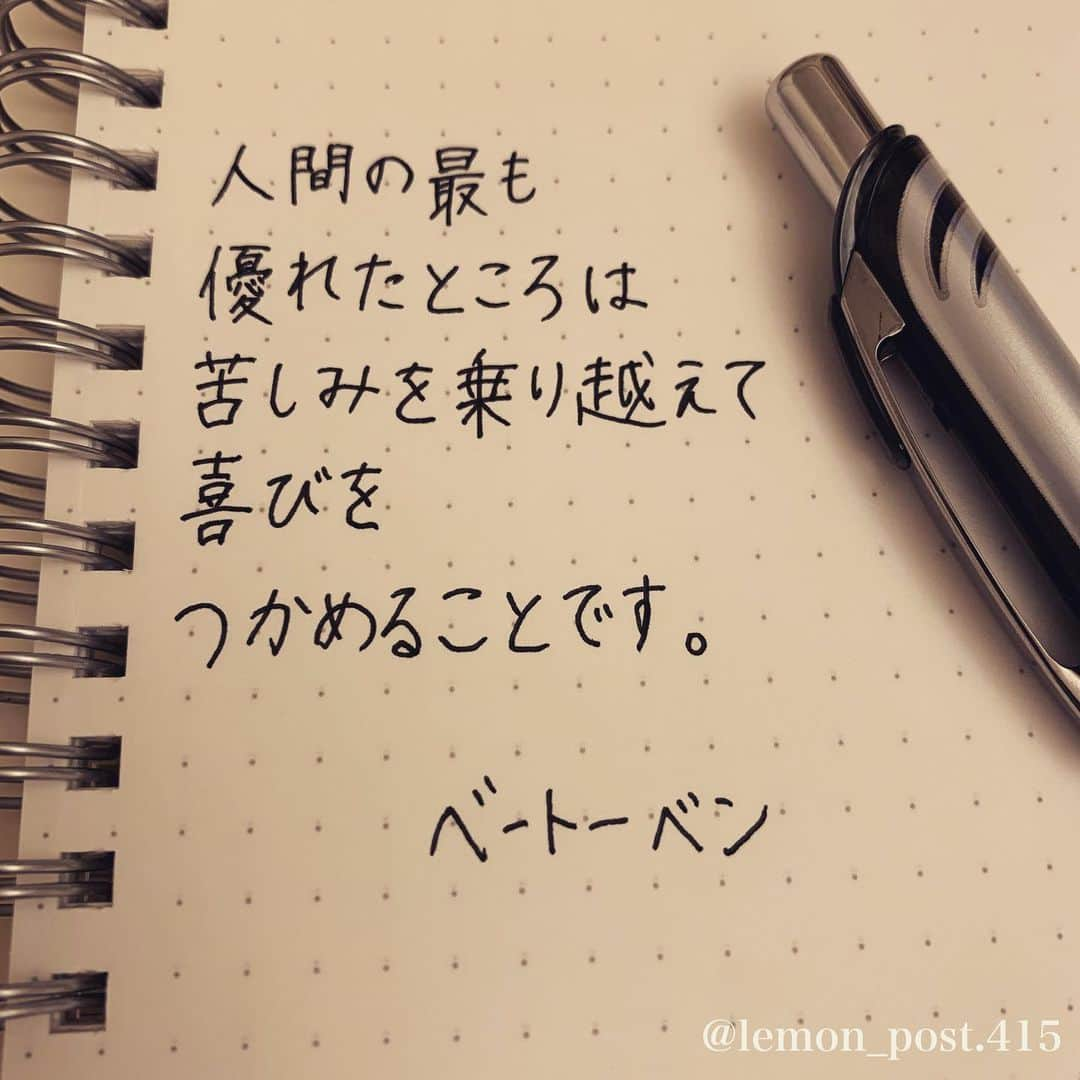 人間の最も
優れたところは
苦しみを乗り越えて
喜びを
つかめることです。
ベートーベン
@lemon_post.415